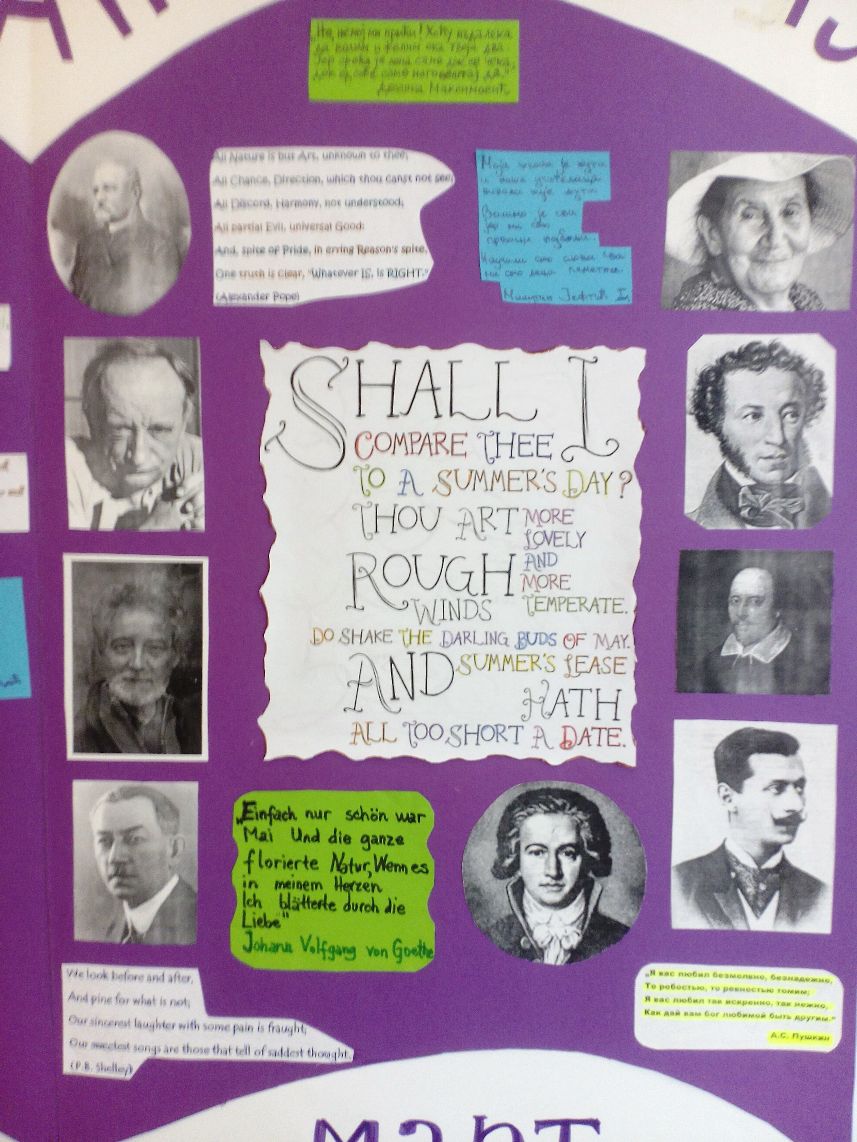 „Не, немој ми прићи! Хоћу издалека
да волим и желим ока твоја два.
Јер срећа је лепа само док се чека,
док од себе само наговештај да."
Десанка Максимовић
All Nature is but Art, unknown to thee;
All Chance, Direction, which thou canst not see;
All Discord, Harmony, not understood;
All partial Evil, universal Good:
And, spite of Pride, in erring Reason's spite,
One truth is clear, "Whatever IS, is RIGHT."
(Alexander Pope)
Моја школа је жута
и наша учитељица
никада није љута
Волимо је сви
Научили смо слова сва
Милутин Јефтић
SHALL I
COMPARE THEE
TO A SUMMER'S DAY?
THOU ART MORE
LOVELY
AND
MORE
TEMPERATE.
ROUGH
WINDS
DO SHAKE THE DARLING BUDS OF MAY.
AND SUMMER'S LEASE
HATH
ALL TOO SHORT A DATE.
„Einfach nur schön war
Mai Und die ganze
florierte Natur, Wenn es
in meinem Herzen
Ich blätterte durch die
Liebe"
Johann Volfgang von Goethe
We look before and after,
And pine for what is not;
Our sincerest laughter with some pain is fraught;
Our sweetest songs are those that tell of saddest thought.
(P.B. Shelley)
„Я вас любил безмолвно, безнадежно,
То робостью, то ревностью томим;
Я вас любил так искренно, так нежно,
Как дай вам бог любимой быть другим."
А.С. Пушкин
МАРТ